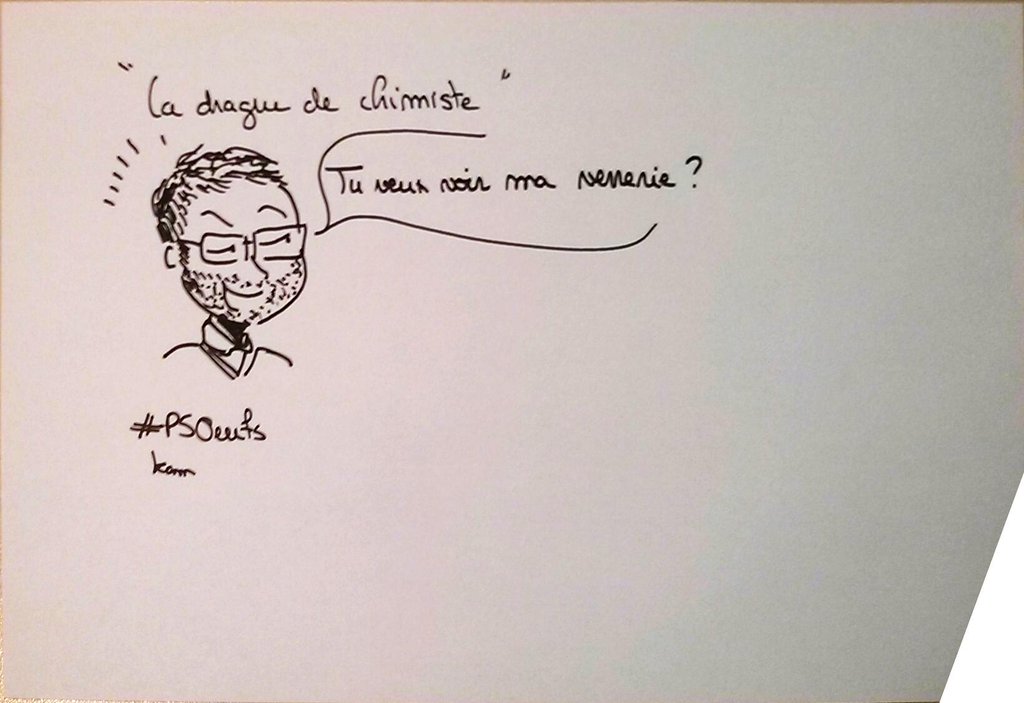 "La drague de chimiste"
Tu veux voir ma verrerie ?
#PSOeufs
kam